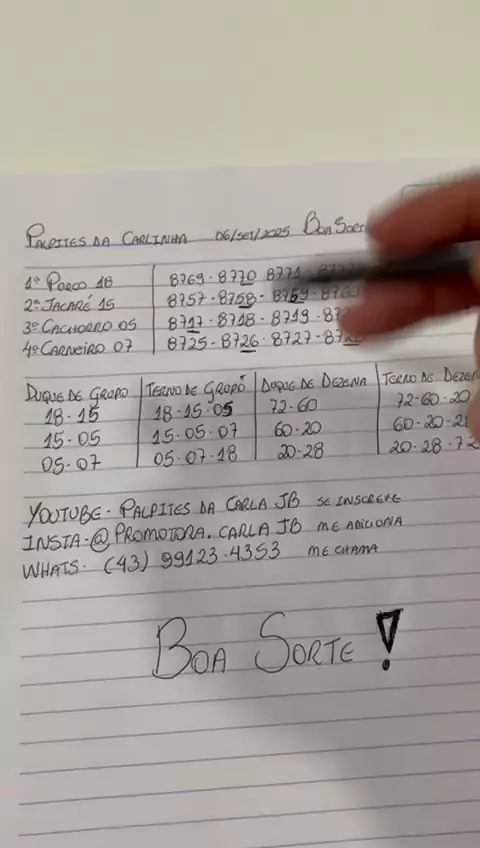 PALPITES DA CARLINHA 06/SET/2025 BOA SORTE
1º PORCO 18 8769-8770 8771-
2º JACARÉ 15 8757-8758-8759-8760
3º CACHORRO 05 8717-8718-8719-
4º CARNEIRO 07 8725-8726-8727-
DUQUE DE GRUPO TERNO DE GRUPO DUQUE DE DEZENA TERNO DE DEZENA
18-15 18-15-05 72-60 72-60-20
15-05 15-05-07 60-20 60-20-28
05-07 05-07-18 20-28 20-28-72
YOUTUBE- PALPITES DA CARLA JB SE INSCREVE
INSTA-@PROMOTORA.CARLA JB ME ADICIONA
WHATS- (43) 99123-4353 ME CHAMA
BOA SORTE!